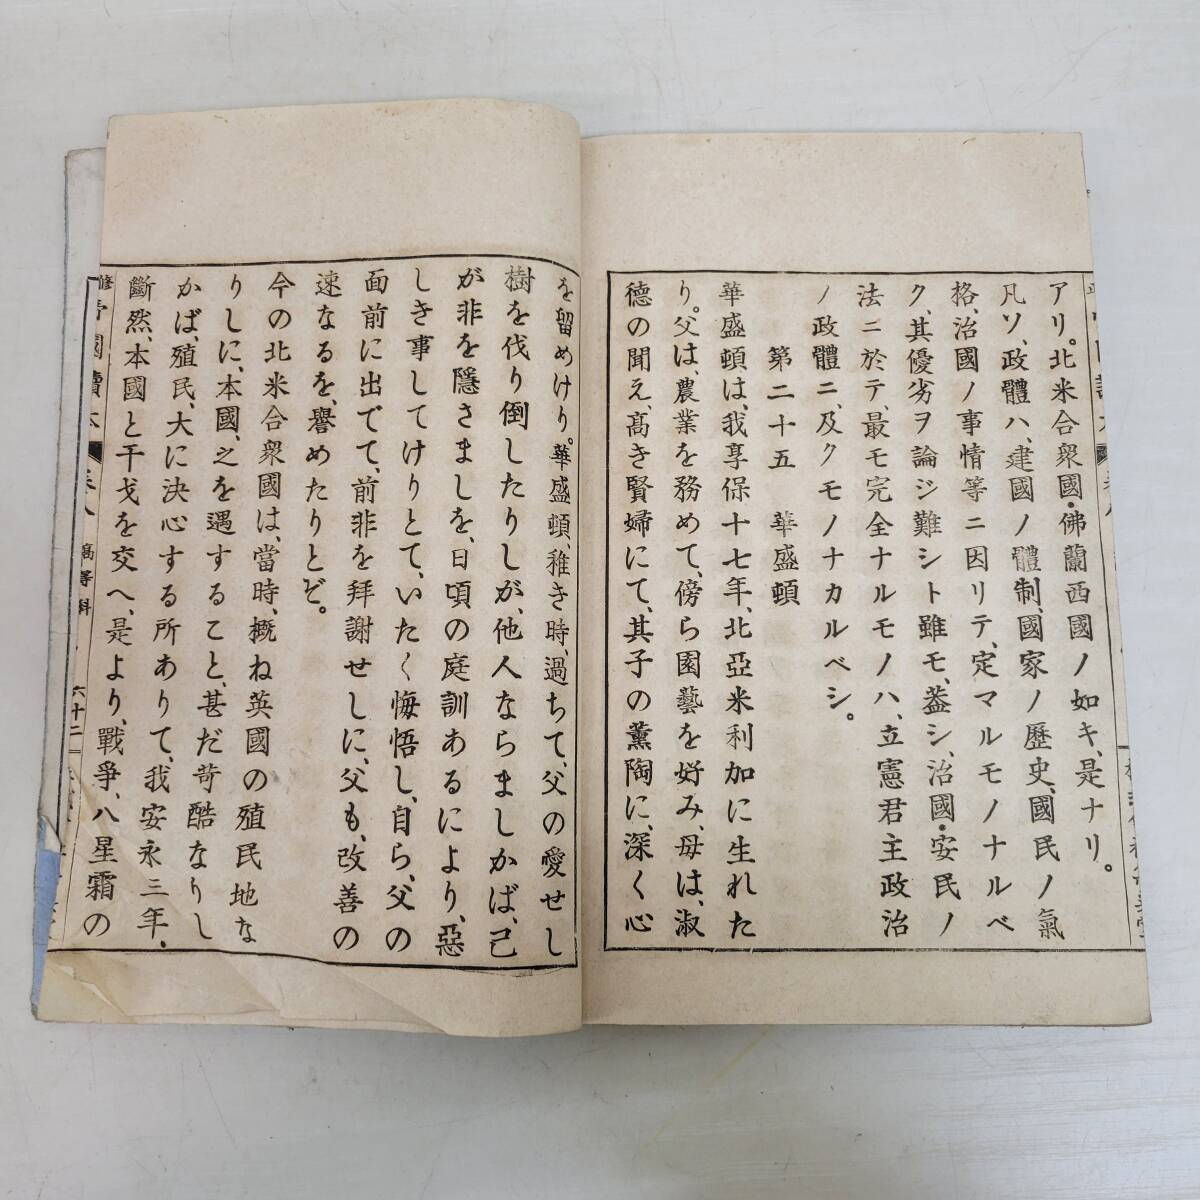 アリ。北米合衆國・佛蘭西國ノ如キ、是ナリ。
凡ソ、政體ハ、建國ノ體制、國家ノ歷史、國民ノ氣
格、治國ノ事情等ニ因リテ、定マルモノナルベ
ク、其優劣ヲ論ジ難シト雖モ、蓋シ、治國・安民ノ
法ニ於テ、最モ完全ナルモノハ、立憲君主政治
ノ政體ニ、及クモノナカルベシ。
第二十五 華盛頓
華盛頓は、我享保十七年、北亞米利加に生れた
り。父は、農業を務めて、傍ら園藝を好み、母は、淑
德の聞え、高き賢婦にて、其子の薰陶に、深く心
を留めけり。華盛頓、稚き時、過ちて、父の愛せし
樹を伐り倒したりしが、他人ならましかば、己
が非を隱さましを、日頃の庭訓あるにより、惡
しき事してけりとて、いたく悔悟し、自ら、父の
面前に出でて、前非を拜謝せしに、父も、改善の
速なるを、譽めたりとぞ。
今の北米合衆國は、當時、概ね英國の殖民地な
りしに、本國、之を遇すること、甚だ苛酷なりし
かば、殖民、大に決心する所ありて、我安永三年、
斷然、本國と干戈を交へ、是より、戰爭、八星霜の
國讀本 卷八 高等科 六十二